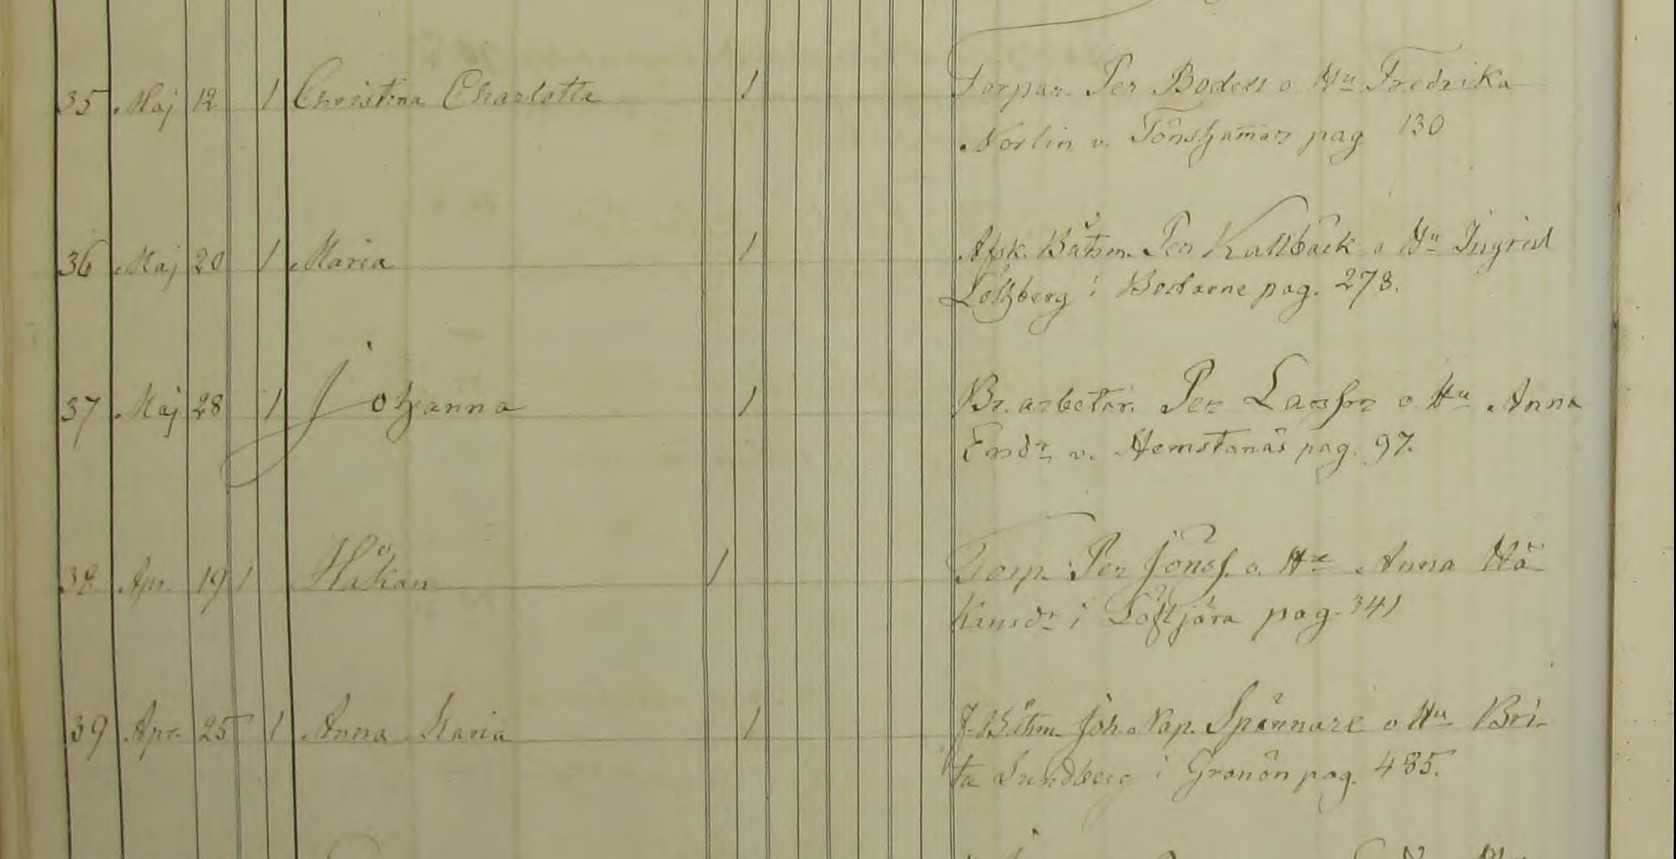 35 Maj 12 1 Christina Charlotta 1 Torpar. Per Bodell o Hu Fredrika
Norlin v. Tönshamar pag 130
36 Maj 20 1 Maria 1 Afsk. Båtsm. Per Kallbäck o Hu Ingrid
Löthberg i Bodarne pag. 278.
37 Maj 28 1 Johanna 1 Br. arbetar. Per Larsson o. Hu Anna
Ersdr v. Hemstanäs pag. 97.
38 Apr. 19 1 Håkan 1 Torp. Per Jönss. o. Hu Anna Hå-
kansdr i Löftjära pag. 341
39 Apr. 25 1 Anna Maria 1 Båtsm. Joh. Nap. Spännare o Hu Bri-
ta Sundberg i Granön pag. 485.